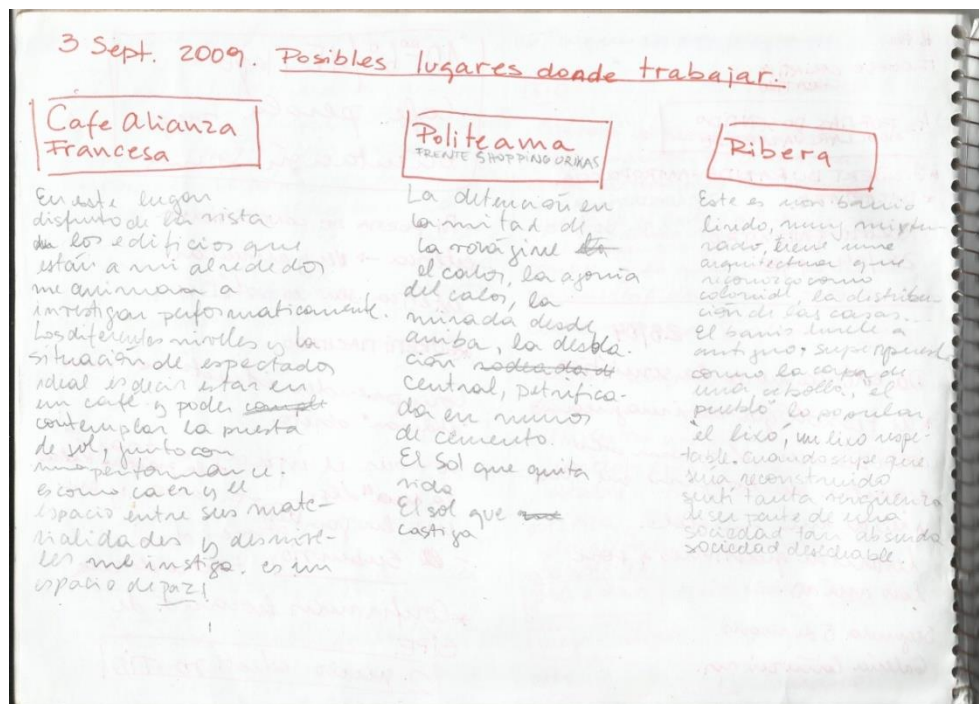 3 Sept. 2009. Posibles lugares donde trabajar.
Cafe alianza
Francesa
En este lugar
disfruto de la vista
los edificios que
están a mi alrededor
me animan a
investigar performaticamente.
Los diferentes niveles y la
situación de espectador
ideal es decir estar en
un café y poder
contemplar la puesta
de sol, junto con
es como caer y el
espacio entre sus mate-
rialidades y desnive-
les me instiga, es un
espacio de paz!
Politeama
FRENTE SHOPPING URIKAS
La detención en
la mitad de
la
el calor, la agonia
del calor, la
mirada desde
arriba, la desola-
ción
central, petrifica-
da en muros
de cemento.
El sol que quita
vida
El sol que
castiga
Ribera
Este es un barrio
lindo, muy mixtu-
rado, tiene una
arquitectura que
reconozco como
colonial, la distribu-
ción de las casas...
El barrio huele a
antiguo, superpuesto
como la capa de
una cebolla, el
pueblo, lo popular
el lixo, un lixo respe-
table. Cuando supe que
seria reconstruido
senti tanta vergüenza
de ser parte de una
sociedad tan absurda
sociedad desechable.